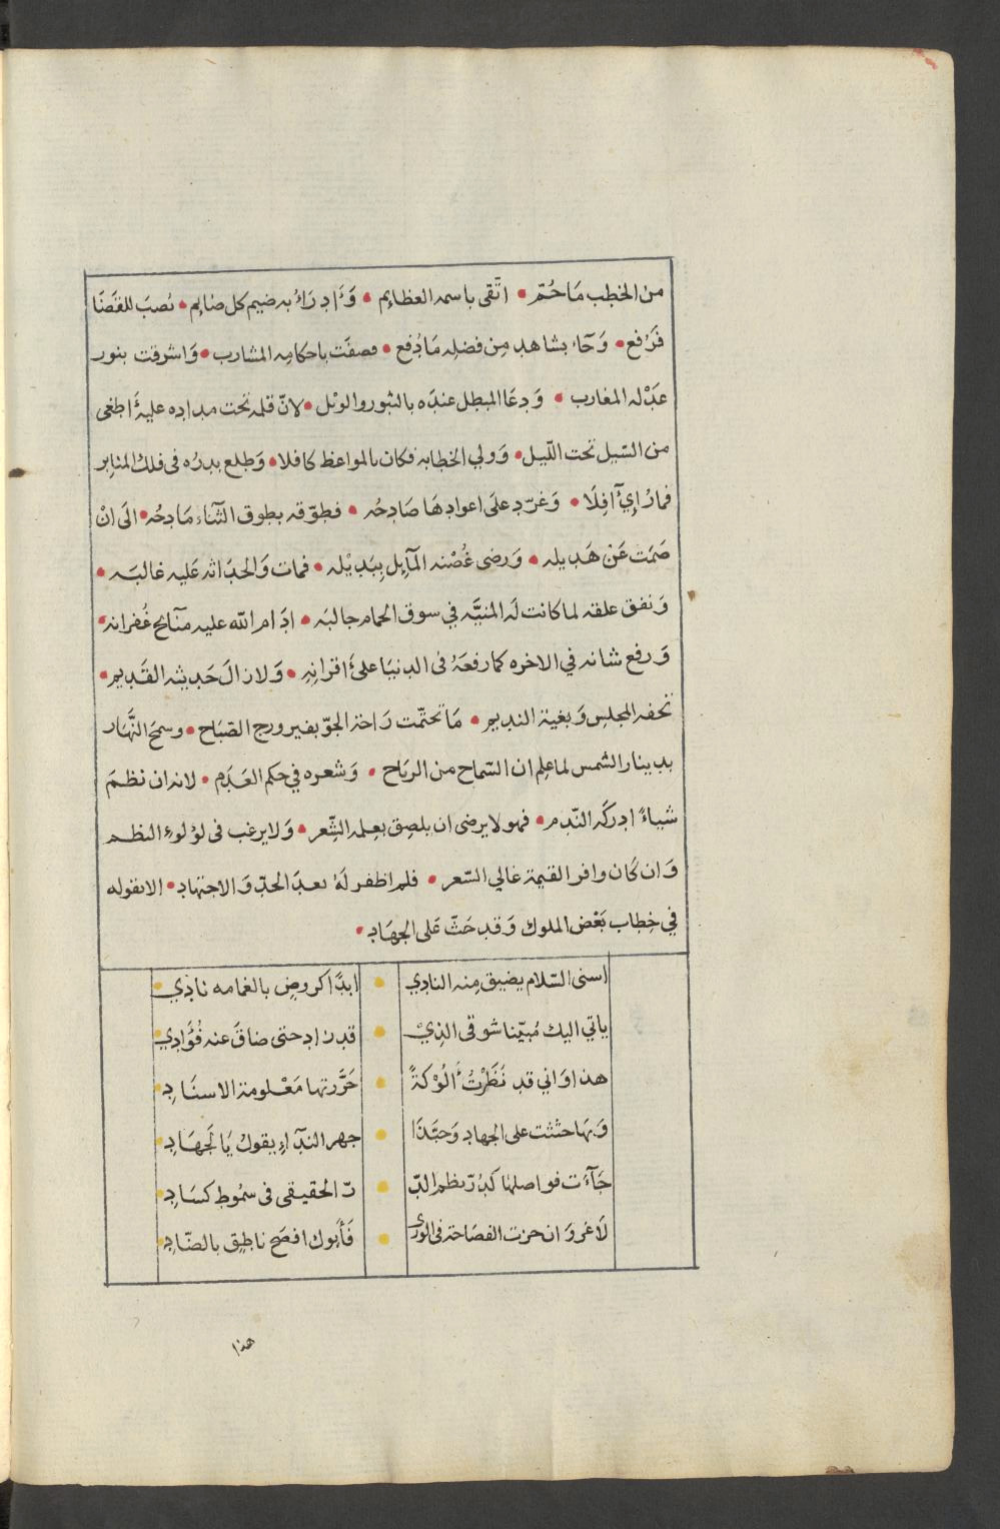 من الخطب مَا حُتم • اتّقى باسمه العظايم • وَأدرَاءُ به ضيم كل ضايم • نصبَ للقضَا
فَرُفع • وَجَاء بشاهد مِن فضله مَا دُفع • فصفَت باحكامه المشارب • وَاشرقت بنور
عَدْله المغارب • وَدعَا المبطل عندَه بالثبور والويل • لانّ قلمه تحت مداده عليهُ اطغى
من السّيل تحت اللّيل • وَولي الخطابه فكان بالمواعظ كافلا • وَطلع بدرُه فى فلك المنابر
فما رُاِيَ آفِلَا • وَغرّد علَى اعوادهَا صَادحُه • فطوّقه بطوق الثّناء مَادحُه • الَى انْ
صَمَت عَن هَديله • وَرضى غُصْنه المآيل بِبَديْله • فمات وَالحدَاثه عَليه غالبَه •
وَنفق علقه لما كانت لَه المنيَّه في سوق الحمام جالبَه • ادَام اللّه عليه منَآيح غُفرانه •
وَرفع شانه في الاخره كما رفعَهُ فى الدنيَا علىَ اقرانِه • وَلا زالَ حَديثه القَديم •
تحفه المجلس وَبغية النديم • مَا تحتّمت رَاحة الجوّ بفيروزج الصّبَاح • وسمحَ النّهَار
بدينار الشمس لما علِم ان السّماح من الربَاح • وَشعره في حكم العَدَم • لانه ان نظمَ
شياءً ادركَه النّدم • فهو لا يرضى ان يلصق بعِلمه الشِّعر • وَلا يرغب فى لؤلوءِ النظم
وَان كَان وافر القيمة غالي السّعر • فلم اظفر لَهُ بعدَ الجدّ وَالاجتهاد • الا بقوله
في خطاب بَعْض الملوك وَقد حَثّ عَلى الجهَاد •
اسنى السّلام يضيق مِنه النادِي • ابدًا كروضٍ بالغمامه نادِي •
ياتي اليك مُبيّنا شوقى الذِيْ • قد زاد حتى ضاقَ عنه فُؤَادِي •
هذا وَاني قد نَظَرْتُ أَلُوْكَةً • حَرَّرتها مَعْلومة الاسنَادِ •
وَبهَا حثثت على الجهادِ وَحبَّذَا • جهر النِدَآءِ يقولُ يَا لَجهَادِ •
جَآءَت فواصلهَا كدُرّ نظم الدّ • رّ الحقيقى فى سمُوطِ كسَادِ •
لَا غروَ ان حزت الفصَاحة فى الورَى • فَأَبوك افصَح ناطِق بالضّادِ •
هذا